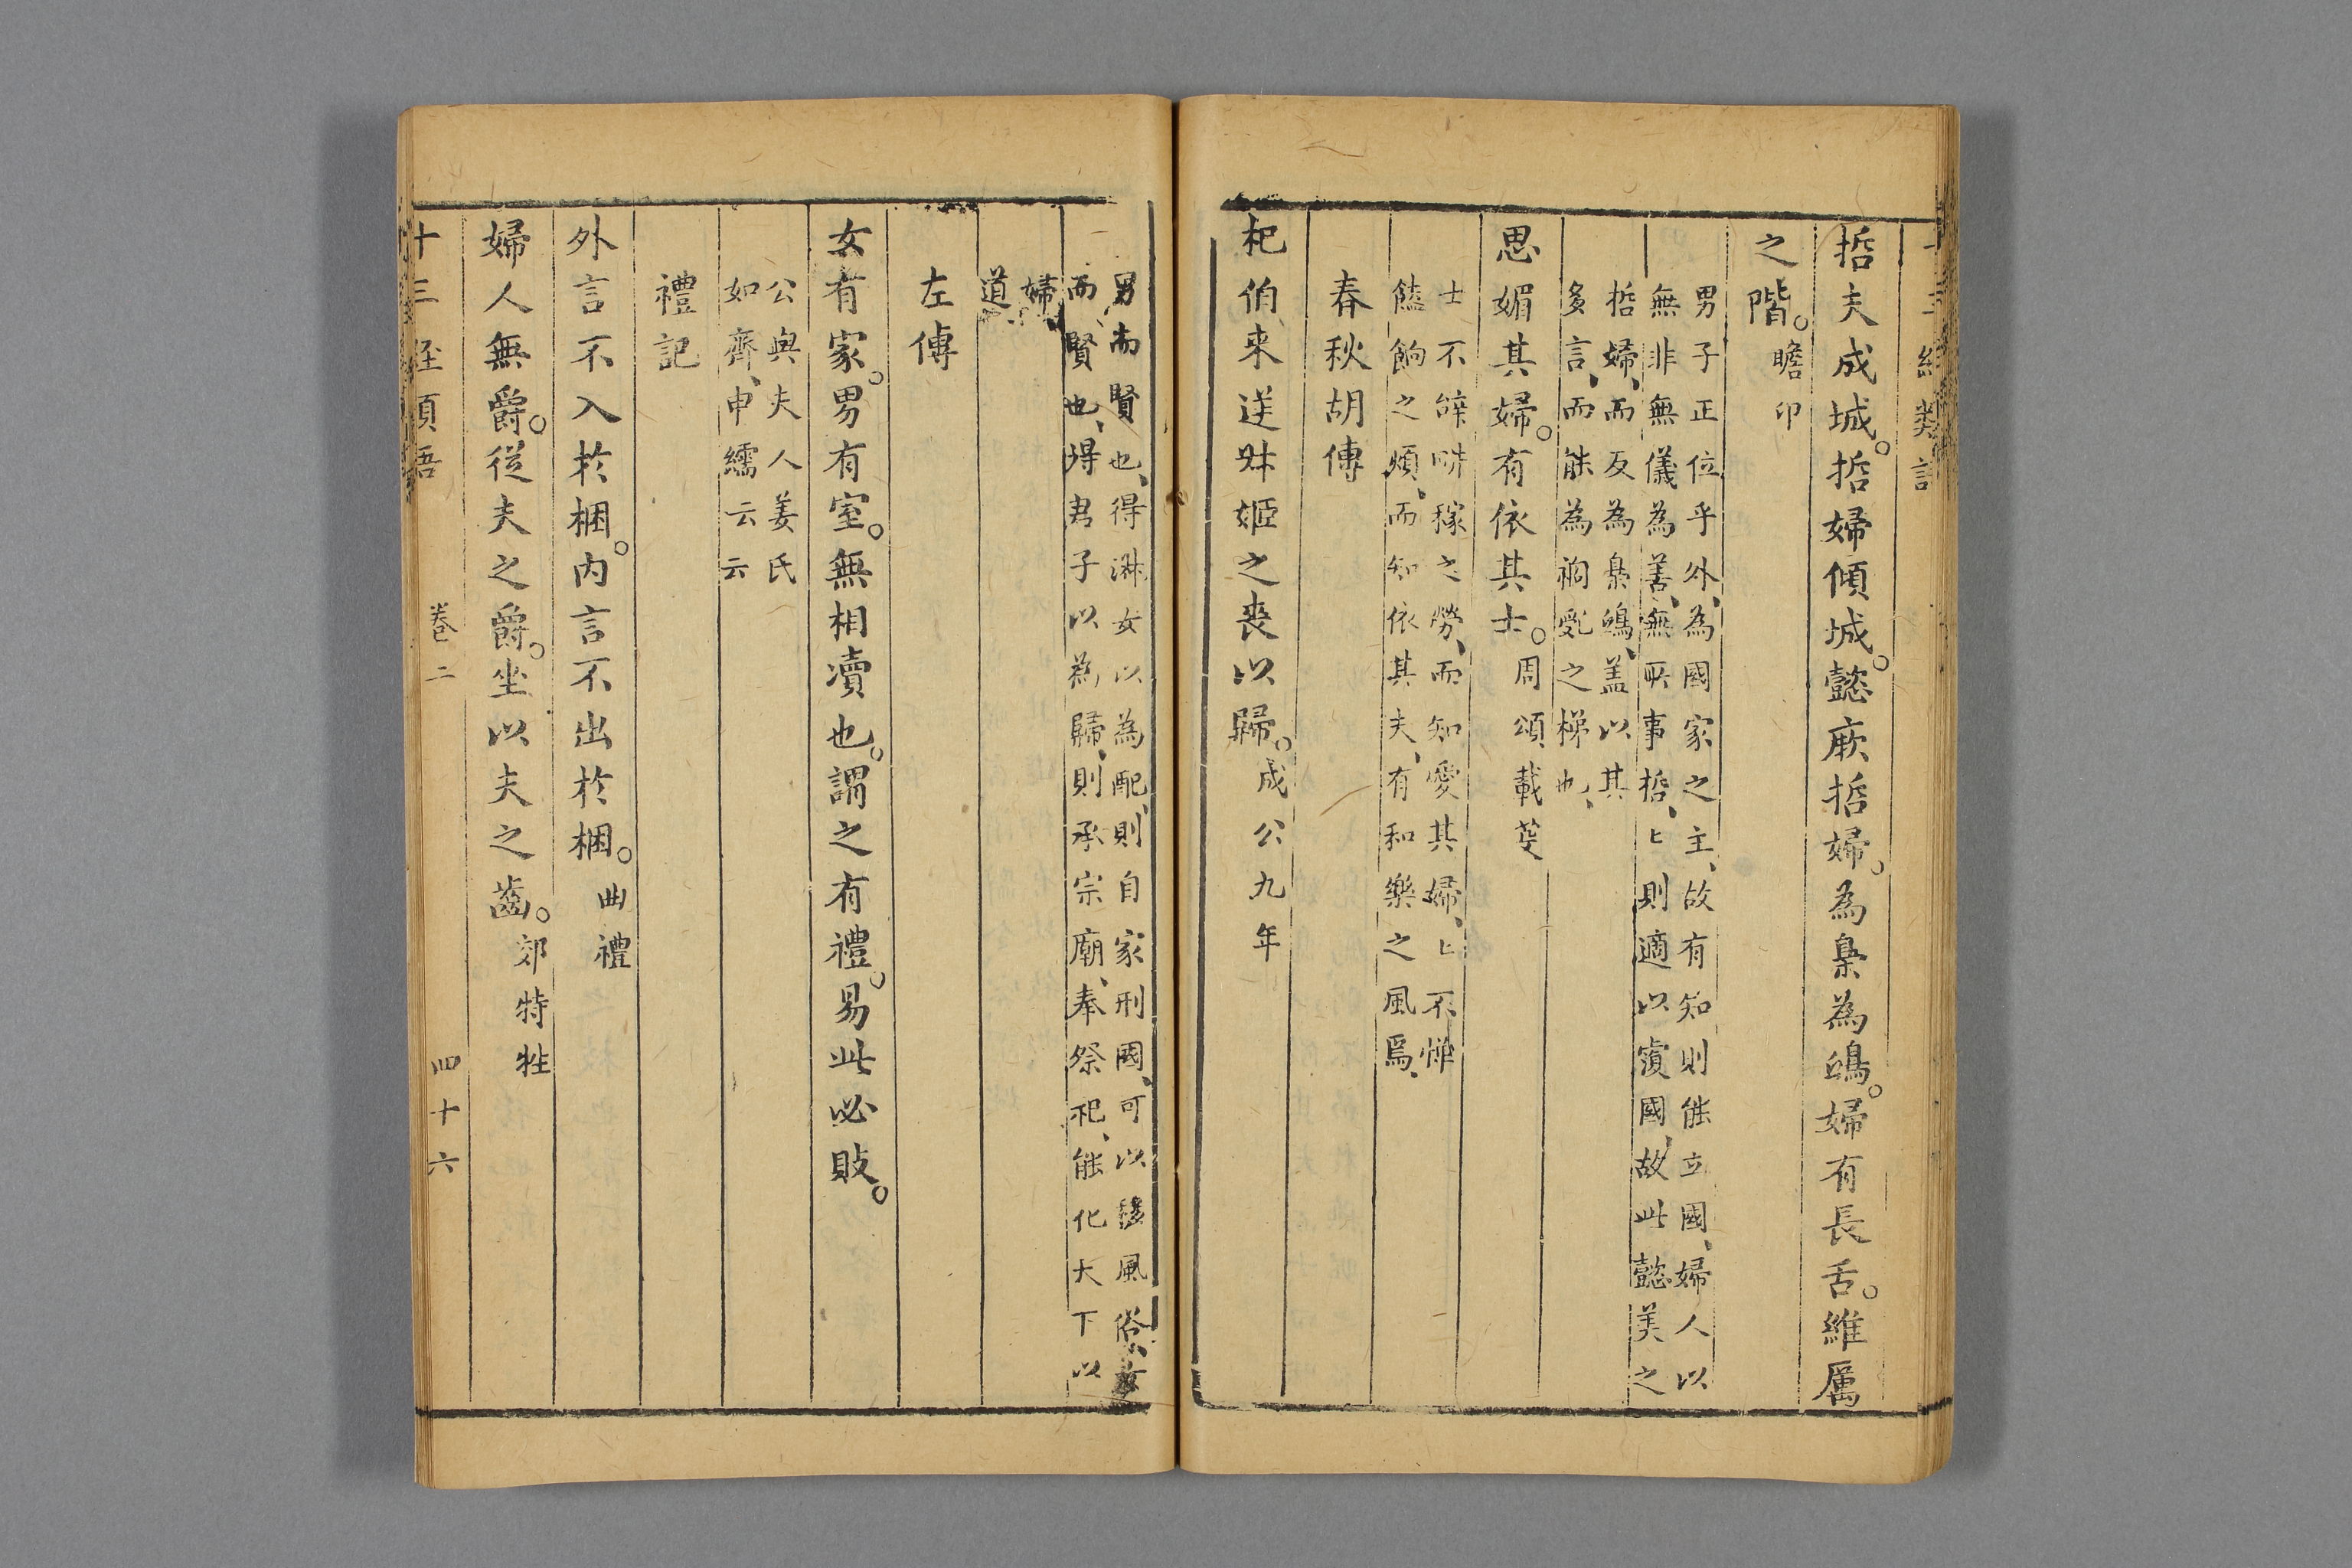 哲夫成城。哲婦傾城。懿厥哲婦。為梟為鴟。婦有長舌。維厲
之階。瞻卬
男子正位乎外、為國家之主、故有知則能立國、婦人以
無非無儀為善、無所事哲、匕則適以覆國、故此懿美之
哲婦、而反為梟鴟、盖以其
多言、而能為禍亂之梯也、
思媚其婦。有依其士。周頌載芟
士不辞畊稼之勞、而知愛其婦、匕不憚
饁餉之煩、而知依其夫、有和樂之風焉、
春秋胡傳
杞伯來逆叔姬之喪以歸。成公九年
男而賢也、得淑女以為配、則自家刑國、可以移風俗、女
而賢也、得君子以為歸、則承宗廟、奉祭祀、能化天下以
婦
道
左傳
女有家。男有室。無相瀆也。謂之有禮。易此必敗。
公與夫人姜氏
如齊、申繻云云
禮記
外言不入於梱。內言不出於梱。曲禮
婦人無爵。從夫之爵。坐以夫之齒。郊特牲
十三経類語 卷二 四十六